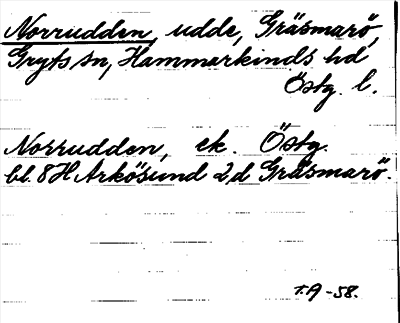 Norrudden, udde, Gräsmarö,
Gryts sn, Hammarkinds hd
Östg. l.
Norrudden, ek. Östg.
bl. 8H Arkösund 2d Gräsmarö.
T.A -58.